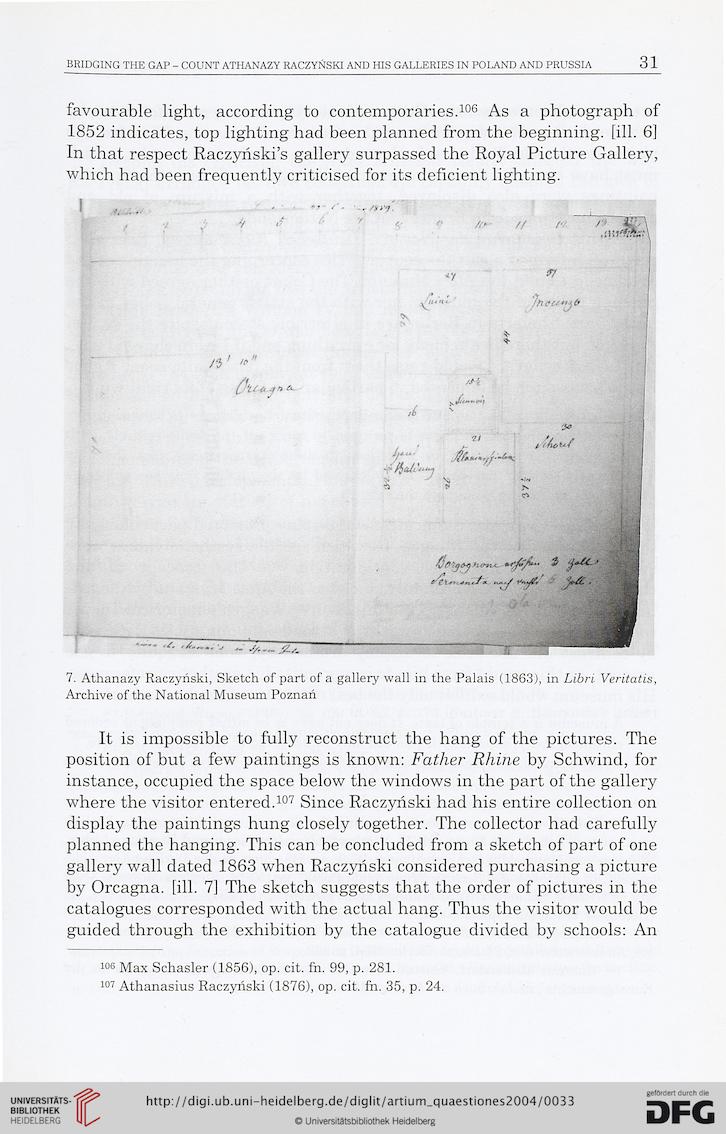 BRIDGING THE GAP – COUNT ATHANAZY RACZYŃSKI AND HIS GALLERIES IN POLAND AND PRUSSIA 31
favourable light, according to contemporaries.106 As a photograph of
1852 indicates, top lighting had been planned from the beginning. [ill. 6]
In that respect Raczyński's gallery surpassed the Royal Picture Gallery,
which had been frequently criticised for its deficient lighting.
1 2 3 4 5 6 7 8 9 10 11 12 13
27
Luini
29
37
Jnocenzo
44
13' 10"
Orcagna
15½
16
21
30
Schorel
26
37½
Borgognone 3 Zoll
Sermoneta 6 Zoll.
7. Athanazy Raczyński, Sketch of part of a gallery wall in the Palais (1863), in Libri Veritatis,
Archive of the National Museum Poznań
It is impossible to fully reconstruct the hang of the pictures. The
position of but a few paintings is known: Father Rhine by Schwind, for
instance, occupied the space below the windows in the part of the gallery
where the visitor entered.107 Since Raczyński had his entire collection on
display the paintings hung closely together. The collector had carefully
planned the hanging. This can be concluded from a sketch of part of one
gallery wall dated 1863 when Raczyński considered purchasing a picture
by Orcagna. [ill. 7] The sketch suggests that the order of pictures in the
catalogues corresponded with the actual hang. Thus the visitor would be
guided through the exhibition by the catalogue divided by schools: An
106 Max Schasler (1856), op. cit. fn. 99, p. 281.
107 Athanasius Raczyński (1876), op. cit. fn. 35, p. 24.
UNIVERSITÄTS-
BIBLIOTHEK
HEIDELBERG
http://digi.ub.uni-heidelberg.de/diglit/artium_quaestiones2004/0033
© Universitätsbibliothek Heidelberg
gefördert durch die
DFG